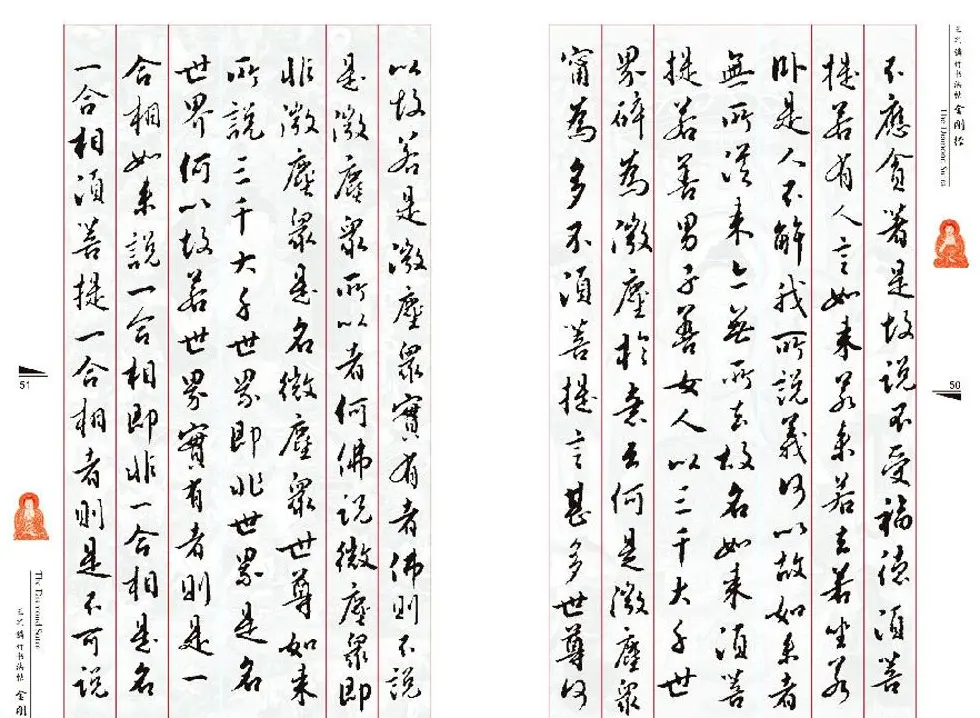 書法帖 金刚经
The Diamond Sutra
50
不應貪著是故说不受福德須菩
提若有人言如来若来若去若坐若
卧是人不解我所說義何以故如来者
無所從来亦無所去故名如来須菩
提若善男子善女人以三千大千世
界碎為微塵於意云何是微塵眾
甯為多不須菩提言甚多世尊何
以故若是微塵眾實有者佛則不說
是微塵眾所以者何佛說微塵眾即
非微塵眾是名微塵眾世尊如来
所說三千大千世界即非世界是名
世界何以故若世界實有者則是一
合相如来說一合相即非一合相是名
一合相須菩提一合相者則是不可說
51
The Diamond Sutra
书法帖 金刚